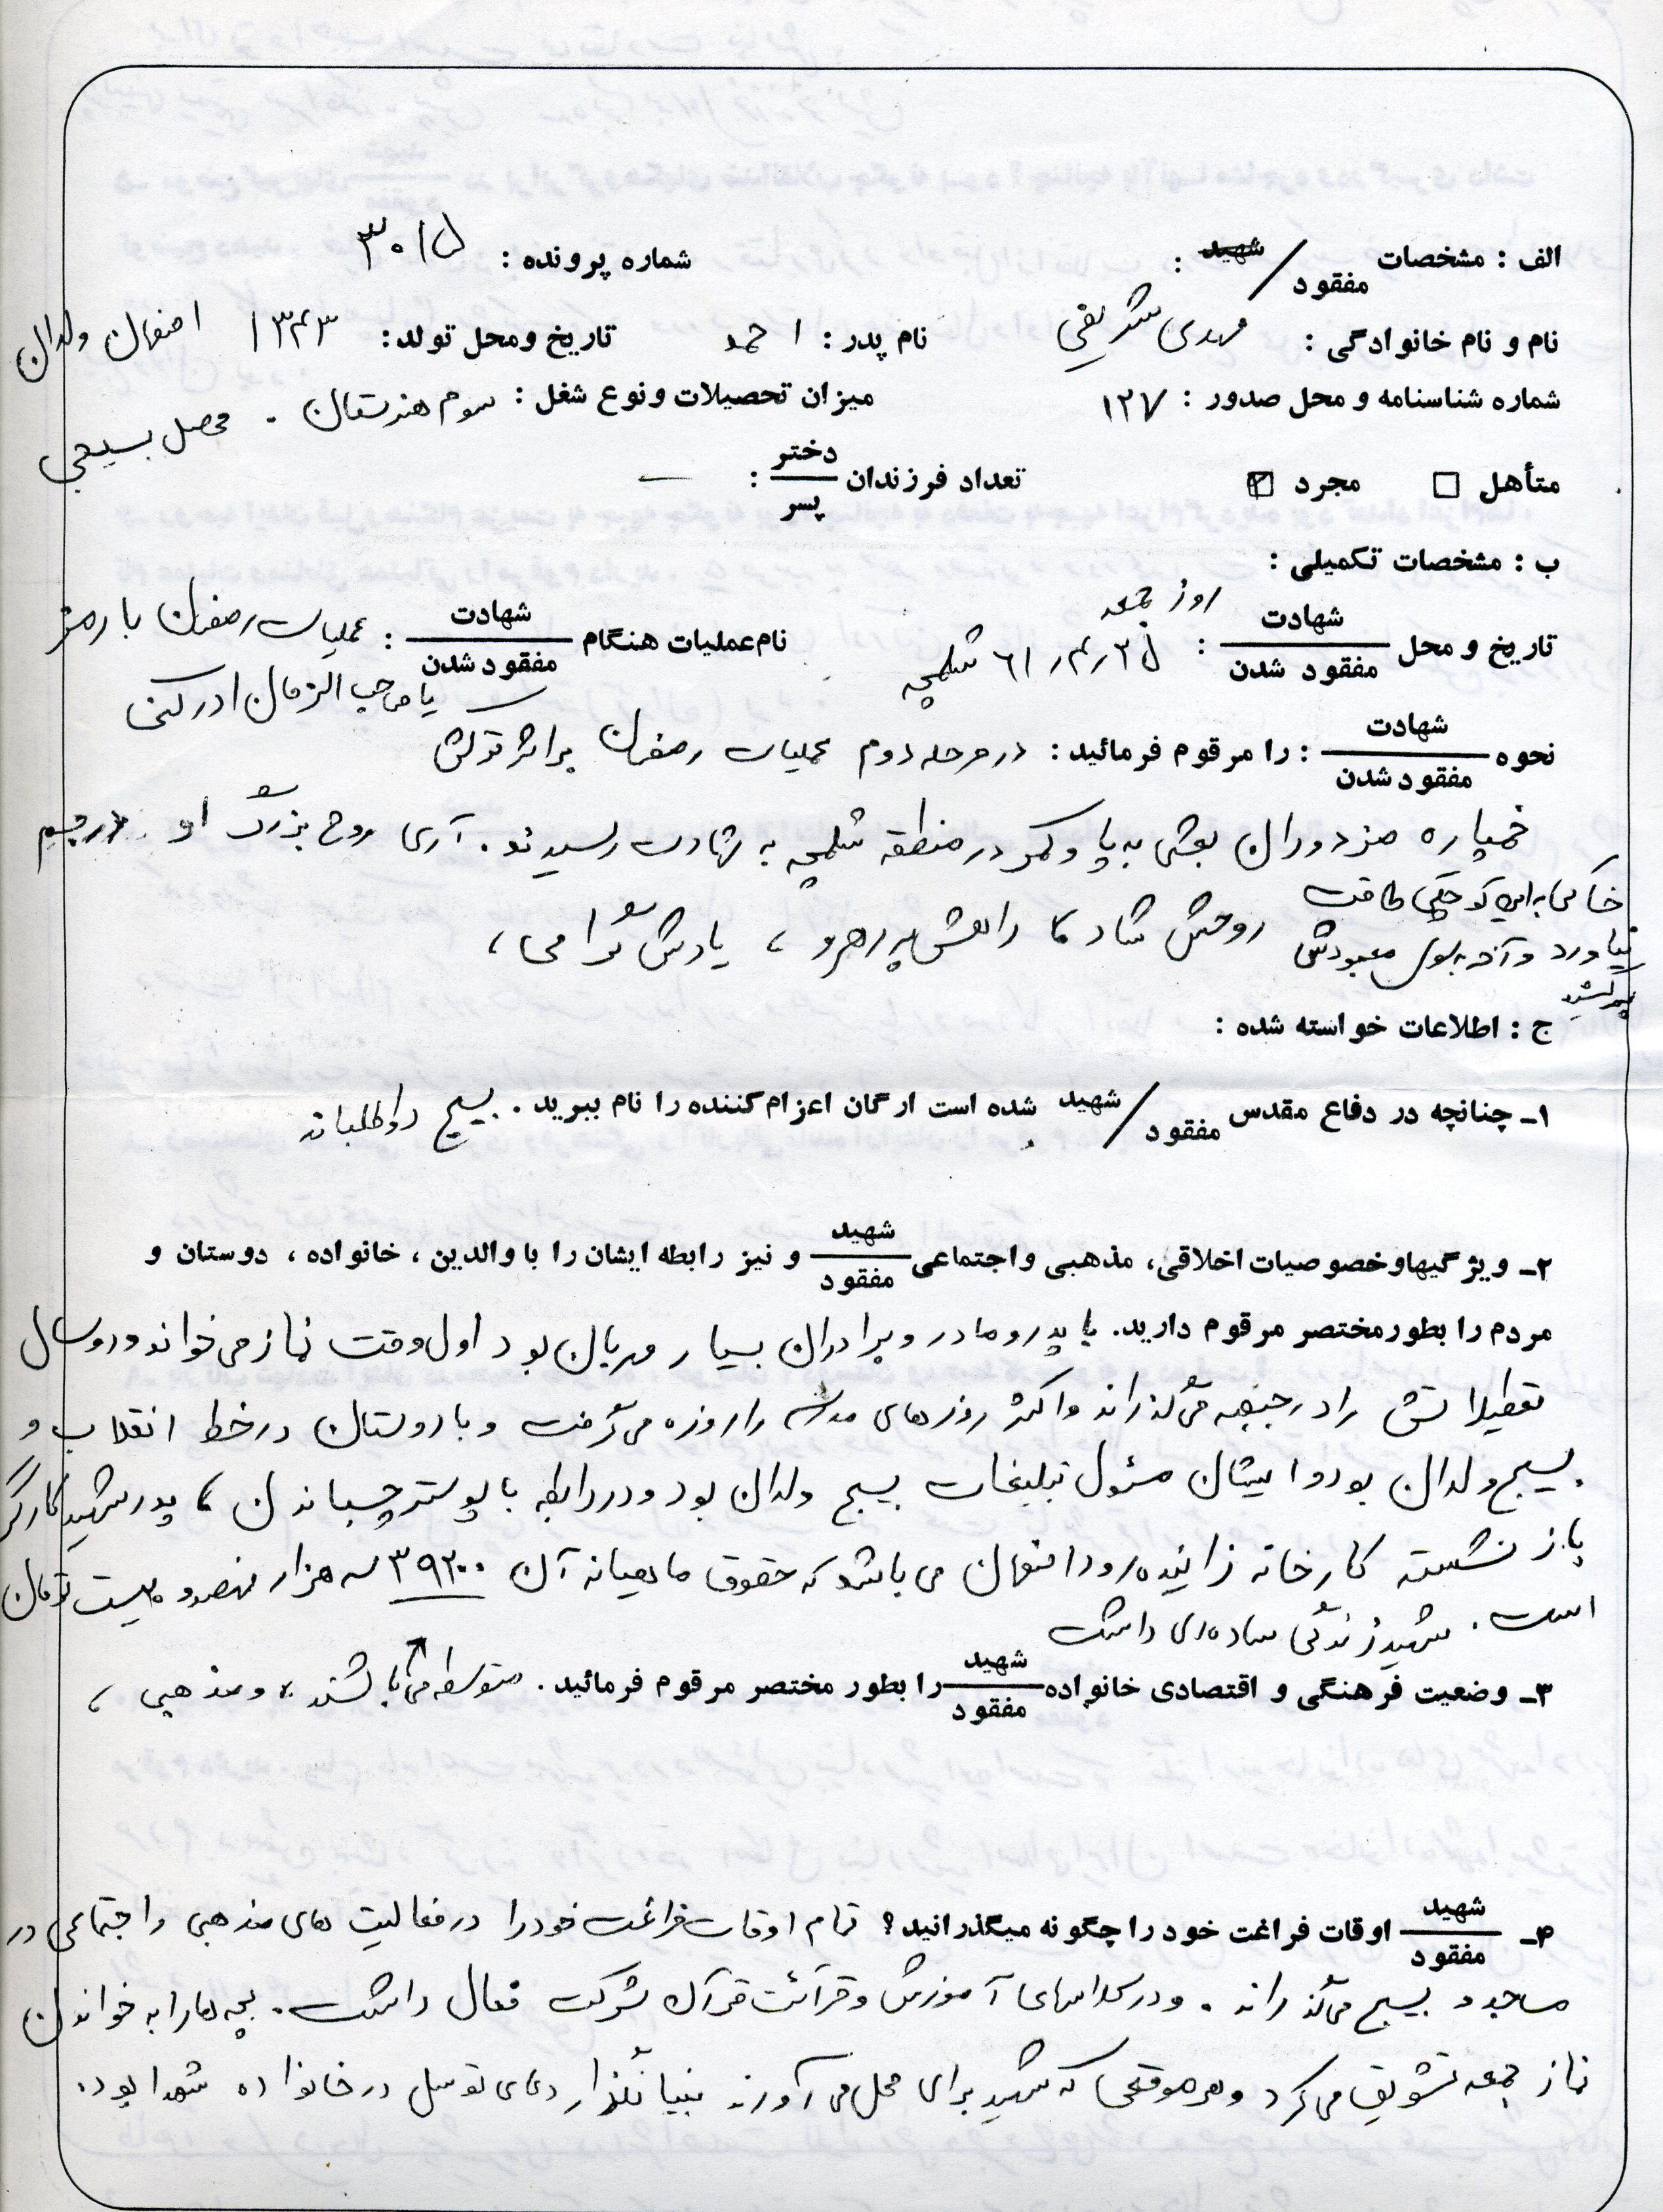 الف : مشخصات شهید / مفقود : شماره پرونده : ۳۰۱۵
نام و نام خانوادگی : مهدی شریفی نام پدر : احمد تاریخ ومحل تولد : ۱۳۴۳ اصفهان ولدان
شماره شناسنامه و محل صدور : ۱۲۷ میزان تحصیلات ونوع شغل : سوم هنرستان . محصل بسیجی
متأهل □ مجرد ☑ تعداد فرزندان دختر / پسر : —
ب : مشخصات تکمیلی :
روز جمعه
تاریخ و محل شهادت / مفقود شدن : ۲۵ ر ۴ ر ۶۱ شلمچه نام عملیات هنگام شهادت / مفقود شدن : عملیات رمضان با رمز
یا صاحب الزمان ادرکنی
نحوه شهادت / مفقود شدن : را مرقوم فرمائید : در مرحله دوم عملیات رمضان بر اثر ترکش
خمپاره مزدوران بعثی به پا و کمر در منطقه شلمچه به شهادت رسیدند . آری روح بزرگ او در جسم
خاکی به این کوچکی طاقت
نیاورد و آخر بسوی معبودش روحش شاد ، راهش پر رهرو ، یادش گرامی ،
پر کشید
ج : اطلاعات خواسته شده :
۱ـ چنانچه در دفاع مقدس شهید / مفقود شده است ارگان اعزام کننده را نام ببرید . بسیج داوطلبانه
۲ـ ویژگیهاو خصوصیات اخلاقی، مذهبی و اجتماعی شهید / مفقود و نیز رابطه ایشان را با والدین ، خانواده ، دوستان و
مردم را بطور مختصر مرقوم دارید. با پدر و مادر و برادران بسیار مهربان بود اول وقت نماز می خواند و دو سال
تعطیلاتش را در جبهه می گذراند و اکثر روزهای مدرسه را روزه می گرفت و با دوستان در خط انقلاب و
بسیج ولدان بود و ایشان مسئول تبلیغات بسیج ولدان بود و در رابطه با پوستر چسباندن ، پدر شهید کارگر
باز نشسته کارخانه زاینده رود اصفهان می باشد که حقوق ماهیانه آن ۳۹۲۰۰ سه هزار نهصد و بیست تومان
است . شهید زندگی ساده ای داشت
۳ـ وضعیت فرهنگی و اقتصادی خانواده شهید / مفقود را بطور مختصر مرقوم فرمائید . متوسط می باشند ، و مذهبی ،
۴ـ شهید / مفقود اوقات فراغت خود را چگونه میگذرانید؟ تمام اوقات فراغت خود را در فعالیت های مذهبی و اجتماعی در
مساجد و بسیج می گذراند . و در کلاسهای آموزش و قرائت قرآن شرکت فعال داشت . بچه ها را به خواندن
نماز جمعه تشویق می کرد و هر موقعی که شهید برای محل می آوردند بنیانگذار دعای توسل در خانواده شهدا بود .